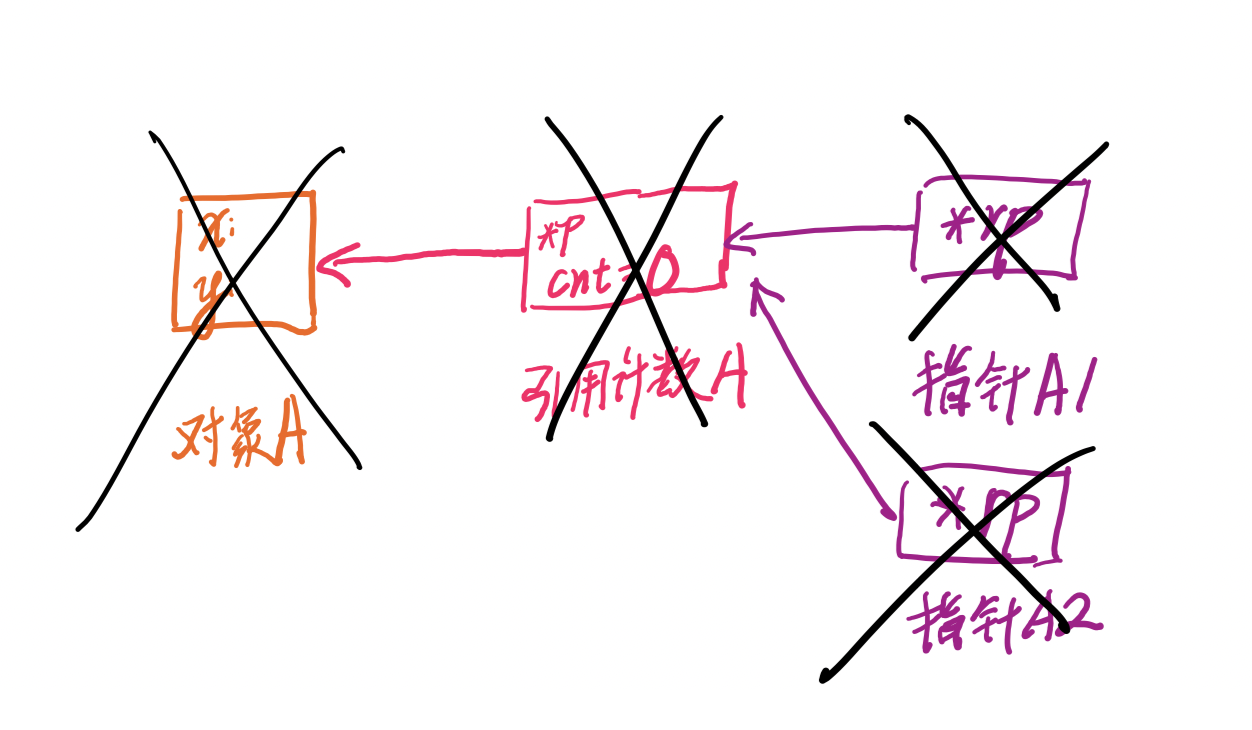 x:
y:
对象A
*p
cnt=0
引用计数A
*pp
指针A1
*pp
指针A2